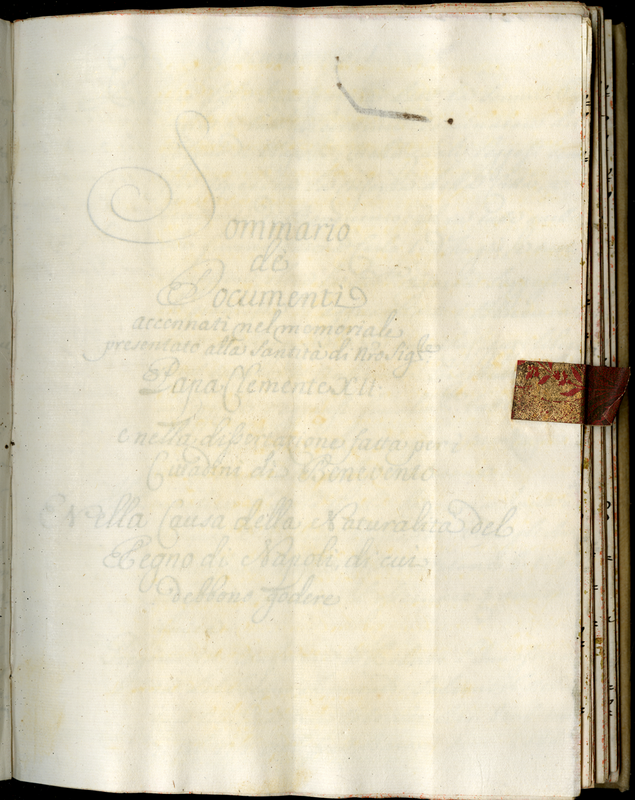 Sommario
de
Documenti
accennati nel memoriale
presentato alla Santità di Nro Sigre
Papa Clemente XII
e nella dissertazione fatta per
Cittadini di Benevento
Nella Causa della Naturalità del
Regno di Napoli, di cui
debbono godere